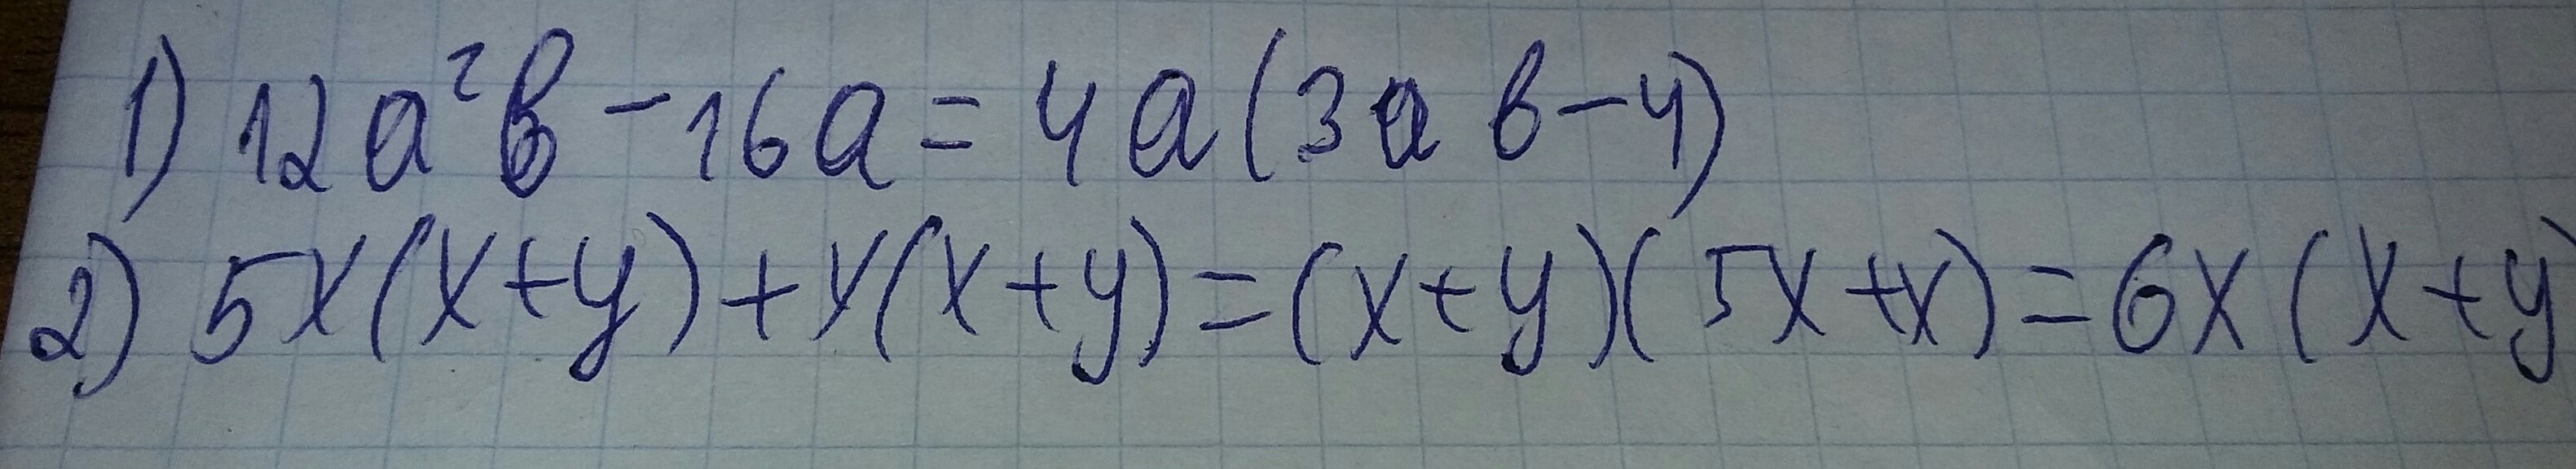 1) 12a²b - 16a = 4a(3ab-4)
2) 5x(x+y)+x(x+y)=(x+y)(5x+x)=6x(x+y)